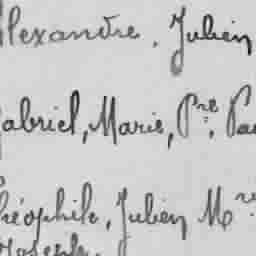 Alexandre, Julien
Gabriel, Marie, Pre, Pa
Théophile, Julien Mr
Joseph,